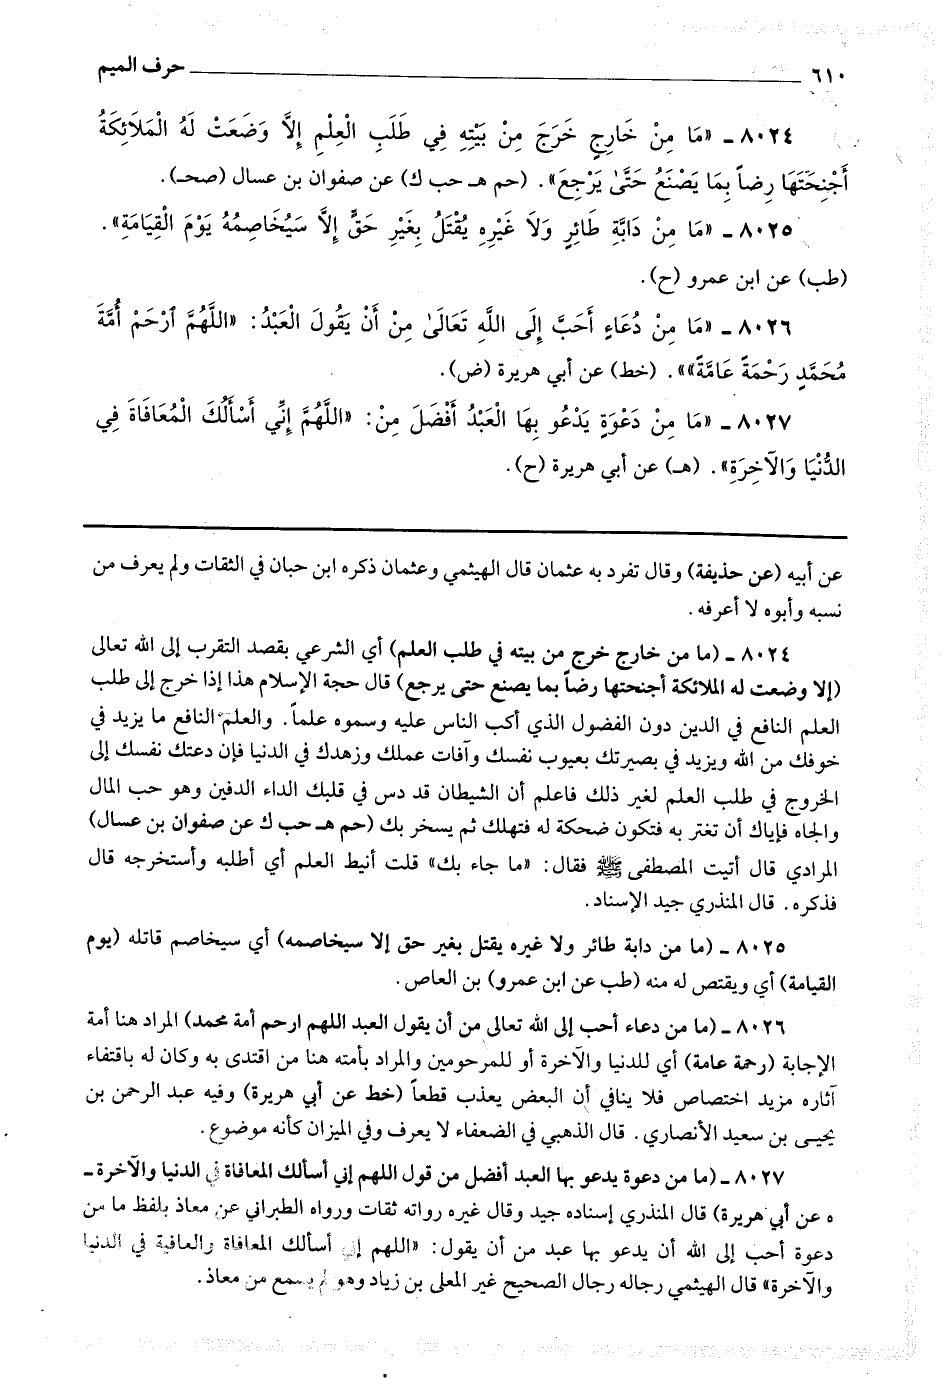 ٦١٠ حرف الميم
٨٠٢٤ ـ «مَا مِنْ خَارِجٍ خَرَجَ مِنْ بَيْتِهِ فِي طَلَبِ الْعِلْمِ إِلاَّ وَضَعَتْ لَهُ الْمَلاَئِكَةُ
أَجْنِحَتَهَا رِضاً بِمَا يَصْنَعُ حَتَّىٰ يَرْجِعَ». (حم هـ حب ك) عن صفوان بن عسال (صحـ).
٨٠٢٥ ـ «مَا مِنْ دَابَّةِ طَائِرٍ وَلاَ غَيْرِهِ يُقْتَلُ بِغَيْرِ حَقٍّ إِلاَّ سَيُخَاصِمُهُ يَوْمَ الْقِيَامَةِ».
(طب) عن ابن عمرو (ح).
٨٠٢٦ ـ «مَا مِنْ دُعَاءٍ أَحَبَّ إِلَى اللَّهِ تَعَالَىٰ مِنْ أَنْ يَقُولَ الْعَبْدُ: «اللَّهُمَّ ٱرْحَمْ أُمَّةَ
مُحَمَّدٍ رَحْمَةً عَامَّةً»». (خط) عن أبي هريرة (ض).
٨٠٢٧ ـ «مَا مِنْ دَعْوَةٍ يَدْعُو بِهَا الْعَبْدُ أَفْضَلَ مِنْ: «اللَّهُمَّ إِنِّي أَسْأَلُكَ الْمُعَافَاةَ فِي
الدُّنْيَا وَالآخِرَةِ». (هـ) عن أبي هريرة (ح).
عن أبيه (عن حذيفة) وقال تفرد به عثمان قال الهيثمي وعثمان ذكره ابن حبان في الثقات ولم يعرف من
نسبه وأبوه لا أعرفه.
٨٠٢٤ ـ (ما من خارج خرج من بيته في طلب العلم) أي الشرعي بقصد التقرب إلى الله تعالى
(إلا وضعت له الملائكة أجنحتها رضاً بما يصنع حتى يرجع) قال حجة الإسلام هذا إذا خرج إلى طلب
العلم النافع في الدين دون الفضول الذي أكب الناس عليه وسموه علماً. والعلم النافع ما يزيد في
خوفك من الله ويزيد في بصيرتك بعيوب نفسك وآفات عملك وزهدك في الدنيا فإن دعتك نفسك إلى
الخروج في طلب العلم لغير ذلك فاعلم أن الشيطان قد دس في قلبك الداء الدفين وهو حب المال
والجاه فإياك أن تغتر به فتكون ضحكة له فتهلك ثم يسخر بك (حم هـ حب ك عن صفوان بن عسال)
المرادي قال أتيت المصطفى ﷺ فقال: «ما جاء بك» قلت أنيط العلم أي أطلبه وأستخرجه قال
فذكره. قال المنذري جيد الإسناد.
٨٠٢٥ ـ (ما من دابة طائر ولا غيره يقتل بغير حق إلا سيخاصمه) أي سيخاصم قاتله (يوم
القيامة) أي ويقتص له منه (طب عن ابن عمرو) بن العاص.
٨٠٢٦ ـ (ما من دعاء أحب إلى الله تعالى من أن يقول العبد اللهم ارحم أمة محمد) المراد هنا أمة
الإجابة (رحمة عامة) أي للدنيا والآخرة أو للمرحومين والمراد بأمته هنا من اقتدى به وكان له باقتفاء
آثاره مزيد اختصاص فلا ينافي أن البعض يعذب قطعاً (خط عن أبي هريرة) وفيه عبد الرحمن بن
يحيى بن سعيد الأنصاري. قال الذهبي في الضعفاء لا يعرف وفي الميزان كأنه موضوع.
٨٠٢٧ ـ (ما من دعوة يدعو بها العبد أفضل من قول اللهم إني أسألك المعافاة في الدنيا والآخرة ـ
ه عن أبي هريرة) قال المنذري إسناده جيد وقال غيره رواته ثقات ورواه الطبراني عن معاذ بلفظ ما من
دعوة أحب إلى الله أن يدعو بها عبد من أن يقول: «اللهم إني أسألك المعافاة والعافية في الدنيا
والآخرة» قال الهيثمي رجاله رجال الصحيح غير المعلى بن زياد وهو لم يسمع من معاذ.